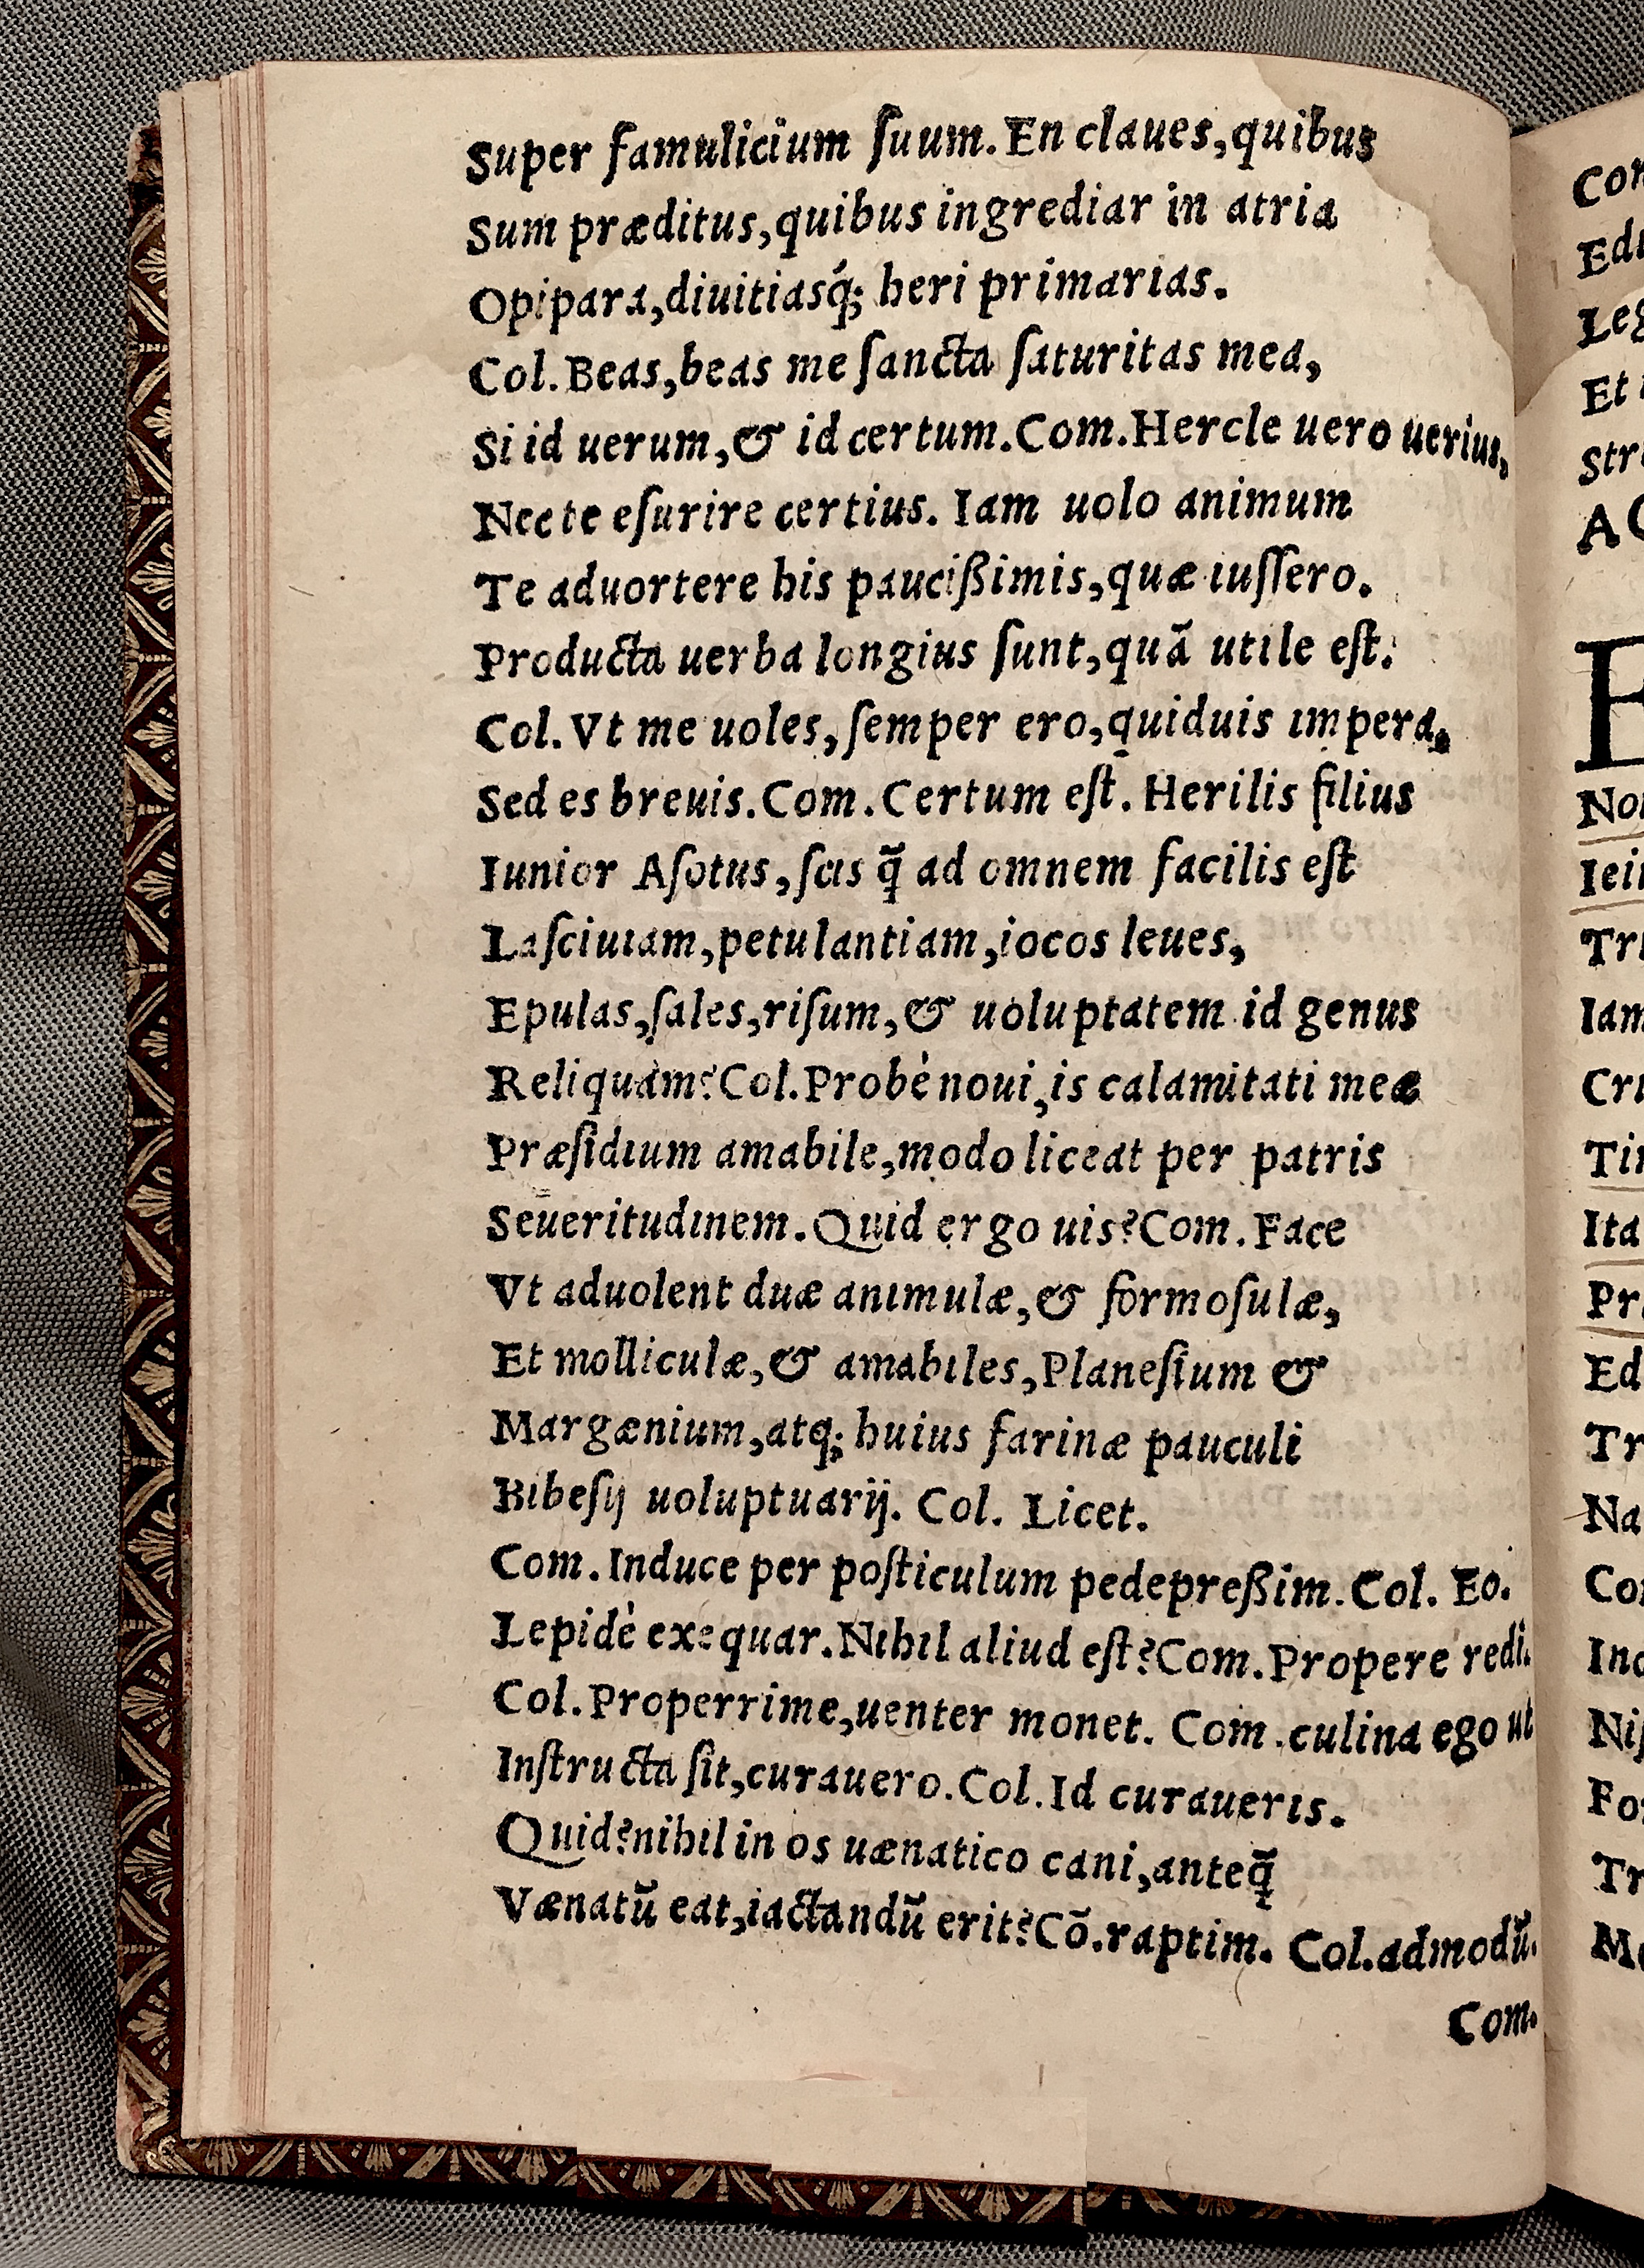 Super famulicium ſuum. En claues, quibus
Sum præditus, quibus ingrediar in atria
Opipara, diuitiasq́; heri primarias.
Col. Beas, beas me ſancta ſaturitas mea,
Si id uerum, & id certum. Com. Hercle uero uerius,
Nec te eſurire certius. Iam uolo animum
Te aduortere his pauciſsimis, quæ iuſſero.
Producta uerba longius ſunt, quã utile eſt.
Col. Vt me uoles, ſemper ero, quiduis impera,
Sed es breuis. Com. Certum eſt. Herilis filius
Iunior Aſotus, ſcis q̃ ad omnem facilis eſt
Laſciuiam, petulantiam, iocos leues,
Epulas, ſales, riſum, & uoluptatem id genus
Reliquam? Col. Probè noui, is calamitati meæ
Præſidium amabile, modo liceat per patris
Seueritudinem. Quid ergo uis? Com. Face
Vt aduolent duæ animulæ, & formoſulæ,
Et molliculæ, & amabiles, Planeſium &
Margænium, atq; huius farinæ pauculi
Bibeſij uoluptuarij. Col. Licet.
Com. Induce per poſticulum pedepreſsim. Col. Eo.
Lepidè exequar. Nihil aliud eſt? Com. Propere redi.
Col. Properrime, uenter monet. Com. culina ego ut
Inſtructa ſit, curauero. Col. Id curaueris.
Quid? nihil in os uænatico cani, anteq̃
Vænatũ eat, iactandũ erit? Cõ. raptim. Col. admodũ.
Com.
Ita